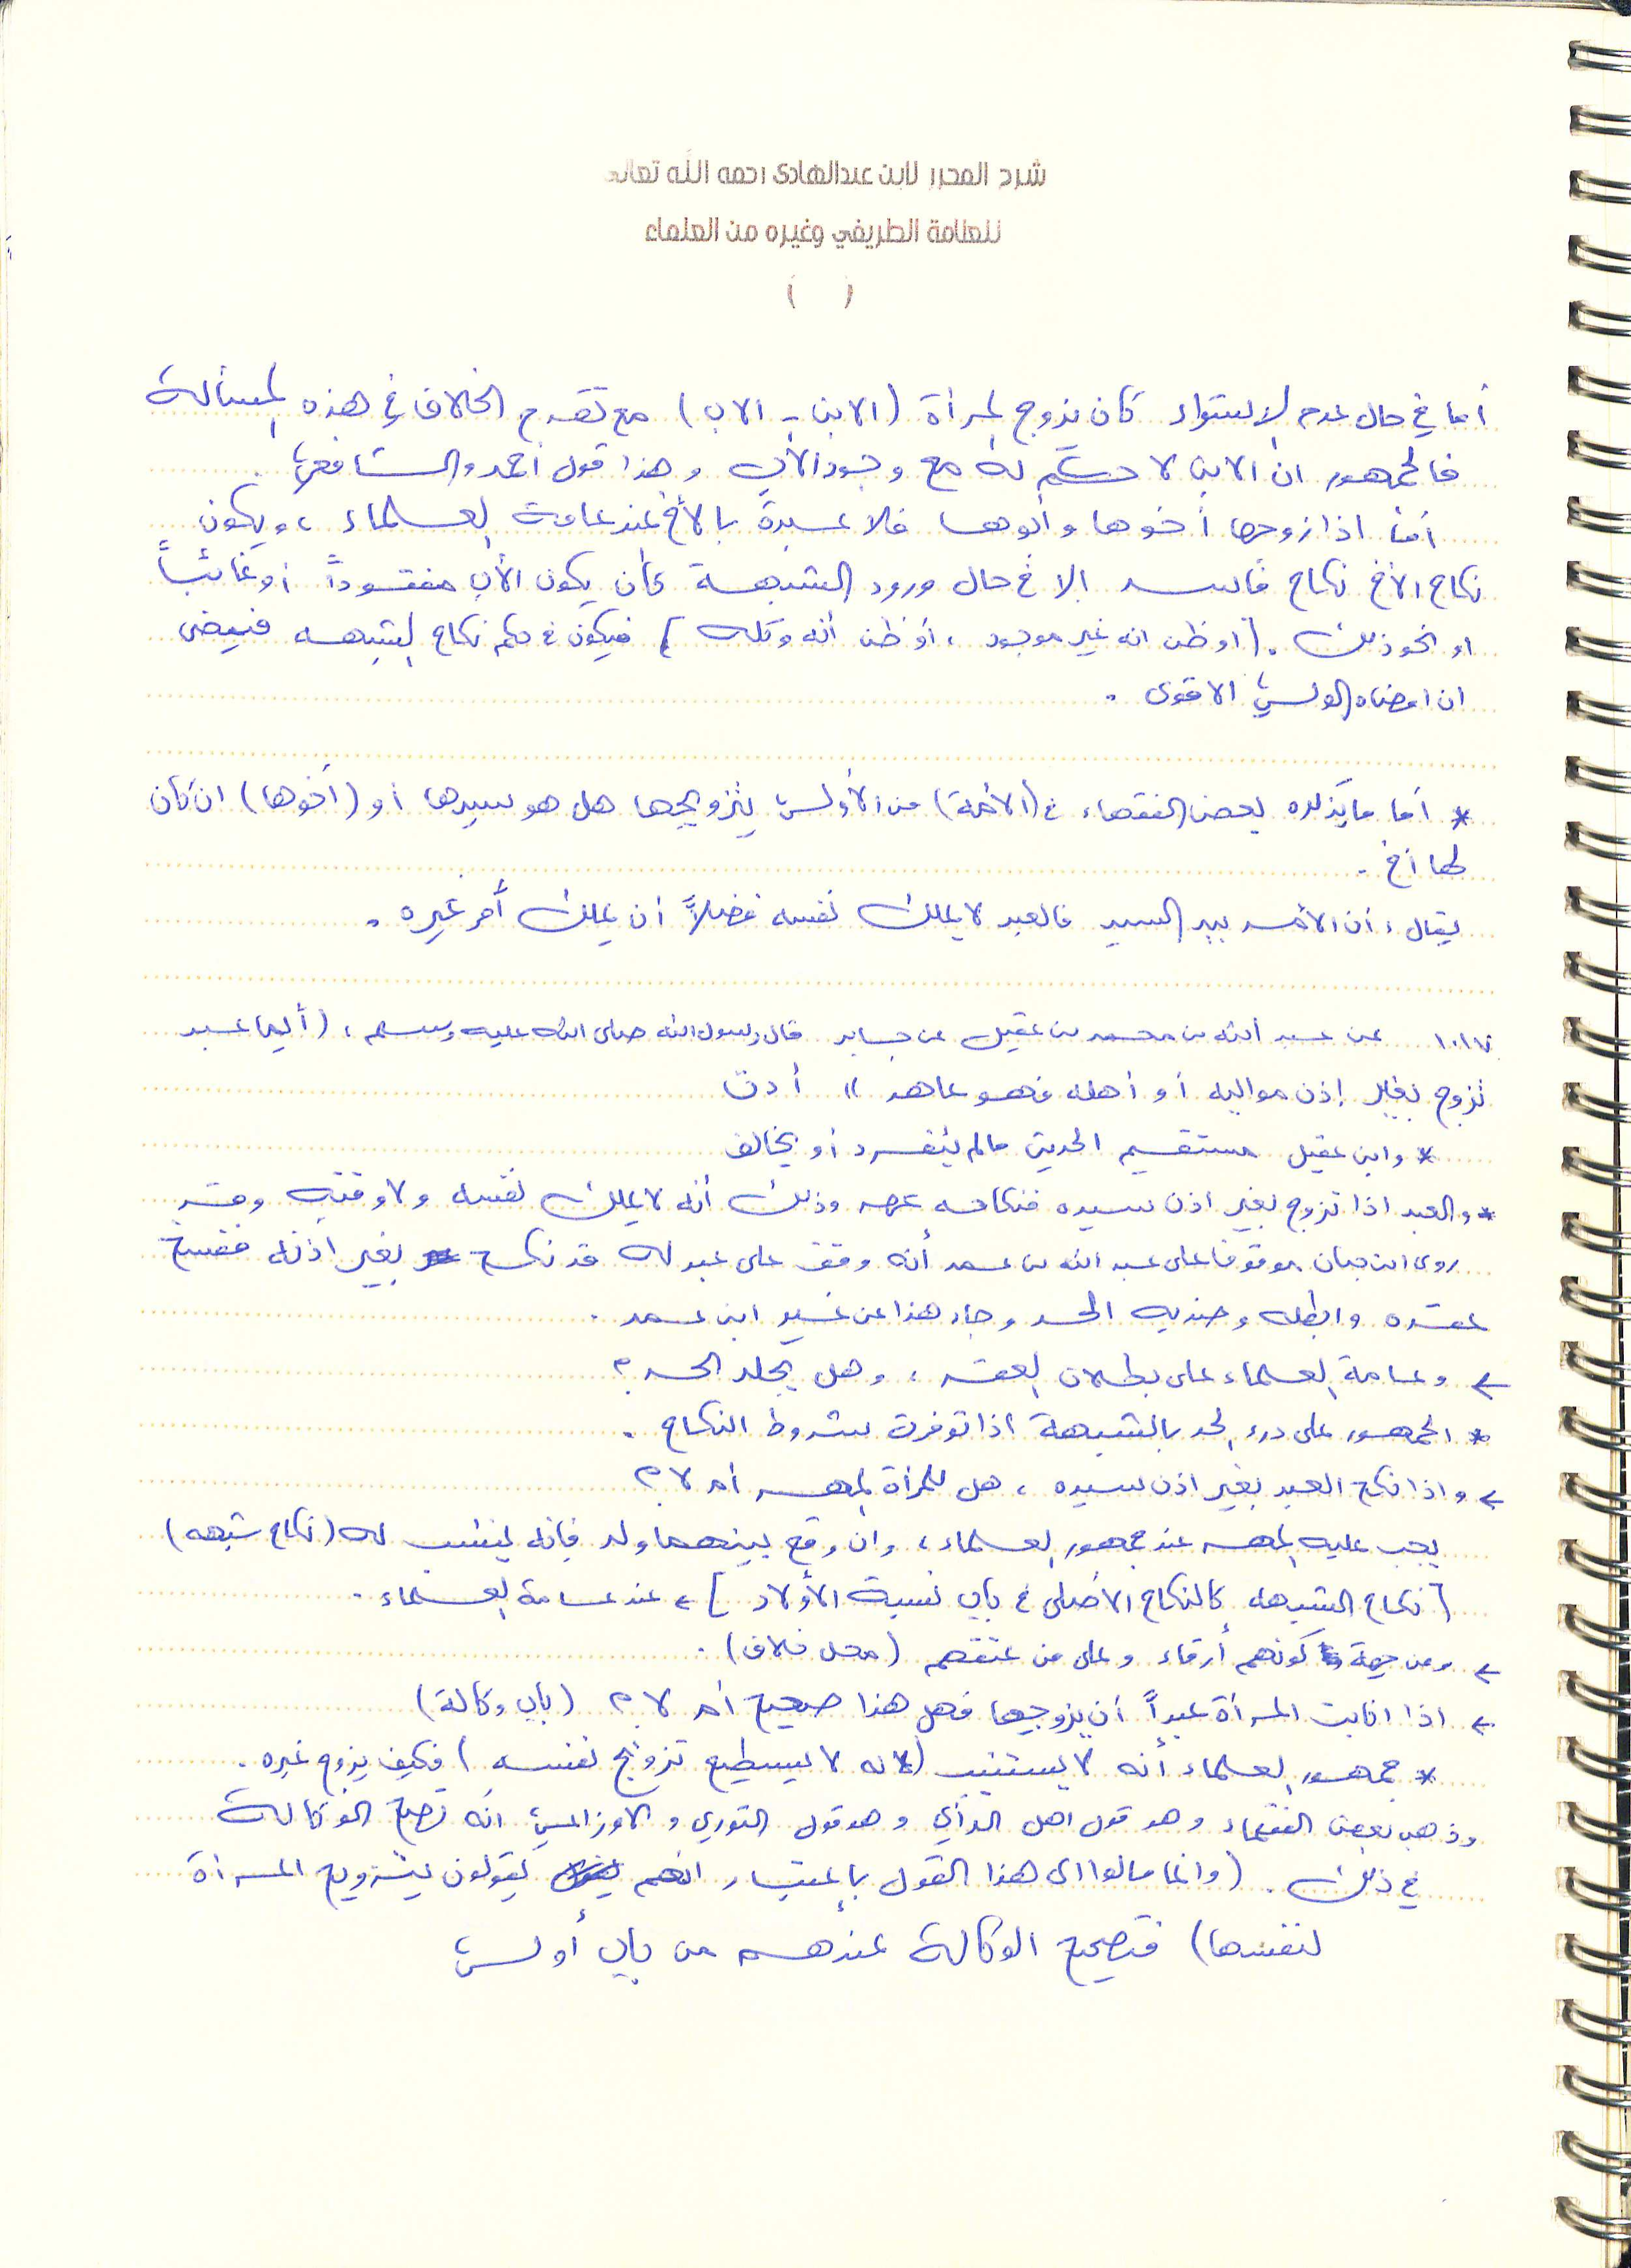 شرح المحرر لابن عبدالهادي رحمه الله تعالى
للعلامة الطريفي وغيره من العلماء
( )
أما في حال عدم الاستواء كان يزوج المرأة (الابن - الاب) مع تقدم الخلاف في هذه المسألة
فالجمهور ان الابن لا حكم له مع وجود الأب وهذا قول أحمد والشافعي .
أما اذا زوجها أخوها وأبوها فلا عبرة بالأخ عند عامة العلماء ، ويكون
نكاح الأخ نكاح فاسد إلا في حال ورود الشبهة كأن يكون الأب مفقوداً أو غائباً
او نحو ذلك . [او ظن انه غير موجود ، أو ظن أنه وكله] فيكون في حكم نكاح الشبهه فيمضى
ان امضاه الولي الاقوى .
* أما ما يذكره بعض الفقهاء في (الأمة) من الأولى بتزويجها هل هو سيدها أو (أخوها) ان كان
لها أخ .
يقال : أن الأمر بيد السيد فالعبد لا يملك نفسه فضلاً أن يملك أمر غيره .
١٠١٧ عن عبد الله بن محمد بن عقيل عن جابر قال رسول الله صلى الله عليه وسلم : (أيما عبد
تزوج بغير إذن مواليه أو أهله فهو عاهر " أ د ت
* وابن عقيل مستقيم الحديث مالم ينفرد أو يخالف
* والعبد اذا تزوج بغير اذن سيده فنكاحه عهر وذلك أنه لا يملك نفسه ولا وقته وقد
روى ابن حبان موقوفا على عبد الله بن عمر أنه وقف على عبد له قد نكح بغير اذنه ففسخ
عقده وابطله وضربه الحد وجاء هذا عن غير ابن عمر .
← وعامة العلماء على بطلان العقد ، وهل يجلد الحد ؟
* الجمهور على درء الحد بالشبهة اذا توفرت شروط النكاح .
← واذا نكح العبد بغير اذن سيده ، هل للمرأة المهر أم لا ؟
يجب عليه المهر عند جمهور العلماء ، وان وقع بينهما ولد فإنه ينسب له (نكاح شبهه)
[نكاح الشبهه كالنكاح الأصلي في باب نسبة الأولاد] ، عند عامة العلماء .
← ومن جهة كونهم أرقاء وعلى من عتقهم (محل خلاف) .
← اذا انابت المرأة عبداً أن يزوجها فهل هذا صحيح أم لا ؟ (باب وكالة)
* جمهور العلماء أنه لا يستنيب (لانه لا يسطيع تزويج نفسه) فكيف يزوج غيره .
وذهب بعض الفقهاء وهو قول اهل الرأي وهو قول الثوري والاوزاعي انه تصح الوكالة
في ذلك . (وانما مالوا الى هذا القول بإعتبار انهم يقولون بتزويج المرأة
لنفسها) فتصحيح الوكالة عندهم من باب أولى